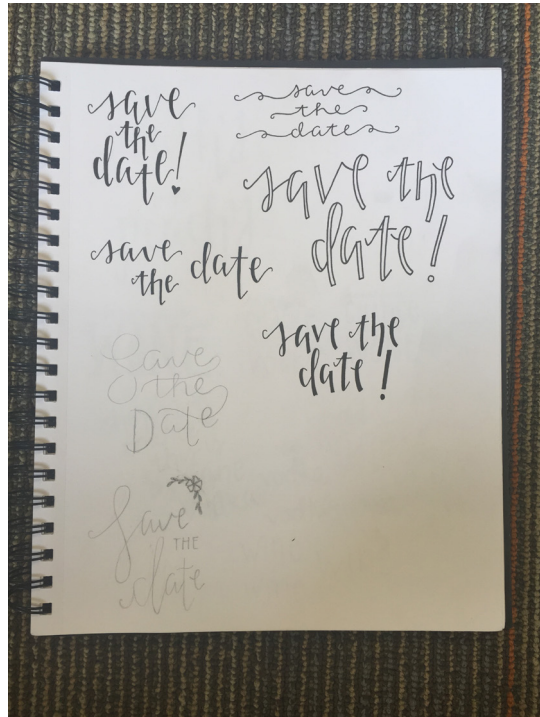 save
the
date!
save
the
date
save the
date!
save
the date
save the
date!
Save
the
Date
Save
THE
date